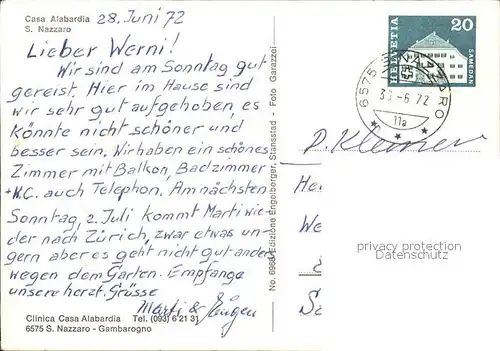 Casa Alabardia
S. Nazzaro
28. Juni 72
Lieber Werni!
Wir sind am Sonntag gut
gereist. Hier im Hause sind
wir sehr gut aufgehoben, es
könnte nicht schöner und
besser sein. Wir haben ein schönes
Zimmer mit Balkon, Badzimmer
+ W.C. auch Telephon. Am nächsten
Sonntag, 2. Juli kommt Marti wie-
der nach Zürich, zwar etwas un-
gern aber es geht nicht gut anders
wegen dem Garten. Empfange
unsere herzl. Grüsse
Marti &
Clinica Casa Alabardia Tel. (093) 6 21 31
6575 S. Nazzaro - Gambarogno
No. 6968 Edizione Engelberger, Stansstad - Foto Garazzei
HELVETIA
20
SAMEDAN
6575 NAZZARO
30.-6.72
11a
He
We
privacy protection
Datenschutz